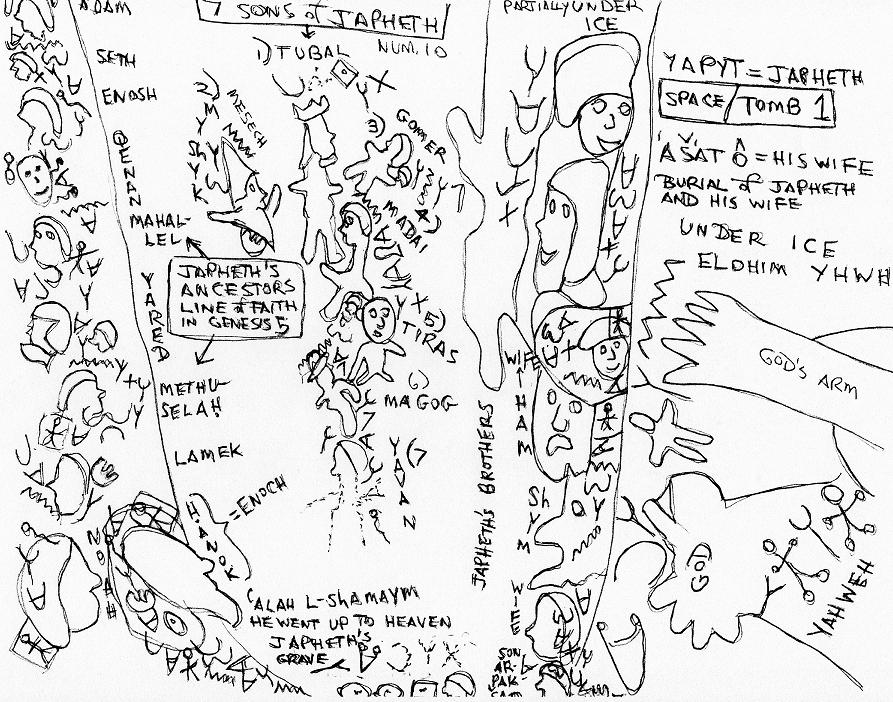 ADAM
SETH
ENOSH
QENAN
MAHAL-
LEL
YARED
METHU-
SELAH
LAMEK
NOAH
7 SONS of JAPHETH
NUM. 10
1) TUBAL
2) MYShYK
MESECH
3) GOMER
4) MADAI
5) TIRAS
6) MAGOG
7) YAVAN
JAPHETH'S
ANCESTORS
LINE of FAITH
IN GENESIS 5
HANOK
= ENOCH
'ALAH L-ShAMAYM
HE WENT UP TO HEAVEN
JAPHETH'S
GRAVE
PARTIALLY UNDER
ICE
JAPHETH'S BROTHERS
WIFE
HAM
ShYM
WIFE
SON
AR-
PAK-
YAPYT = JAPHETH
SPACE / TOMB 1
'AŠAT Ô = HIS WIFE
BURIAL of JAPHETH
AND HIS WIFE
UNDER ICE
ELOHIM YHWH
GOD'S ARM
GOD
YAHWEH